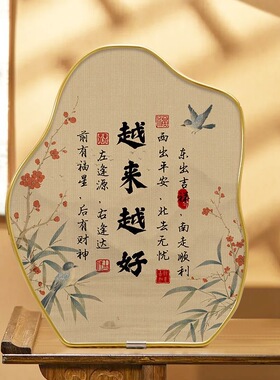 东出吉祥，南走顺利
西出平安，北去无忧
越来越好
左逢源，右逢达
前有福星，后有财神